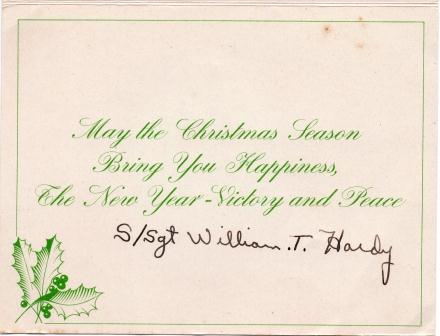 May the Christmas Season
Bring You Happiness,
The New Year - Victory and Peace
S/Sgt William. T. Hardy